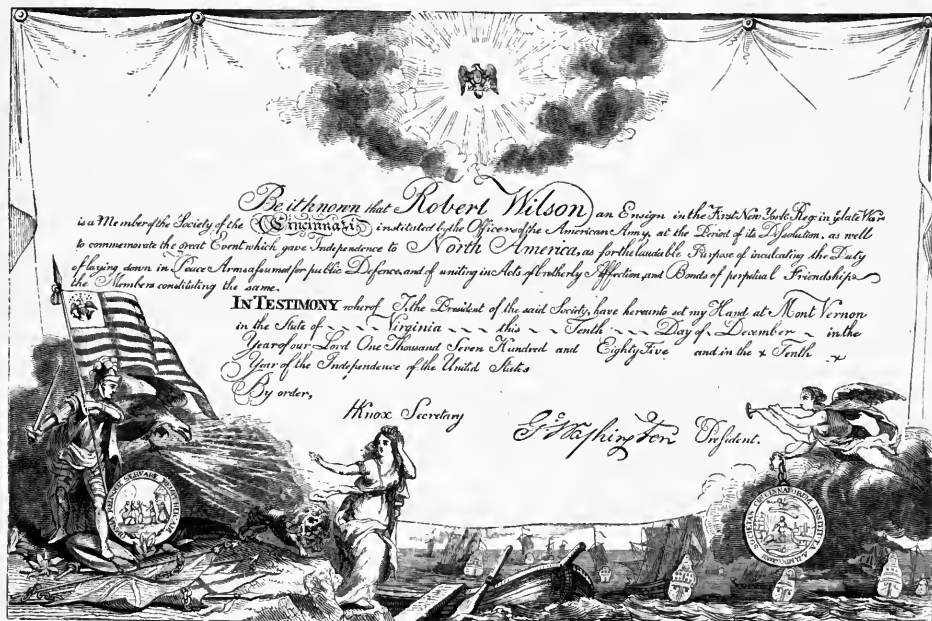 Be it known that Robert Wilson an Ensign in the First New York Reg: in ye late War
is a Member of the Society of the Cincinnati instituted by the Officers of the American Army, at the Period of its Dissolution, as well
to commemorate the great Event which gave Independence to North America, as for the laudable Purpose of inculcating the Duty
of laying down in Peace Arms assumed for public Defence, and of uniting in Acts of brotherly Affection, and Bonds of perpetual Friendship
the Members constituting the same.
IN TESTIMONY wherof I the President of the said Society, have hereunto set my Hand at Mont Vernon
in the State of Virginia this Tenth Day of December in the
Year of our Lord One Thousand Seven Hundred and Eighty Five and in the Tenth
Year of the Independence of the United States
By order,
HKnox Secretary
G Washington President.
OMNIA SERVARE REMPUBLICAM
SOCIETAS CINCINNATORUM INSTITUTA